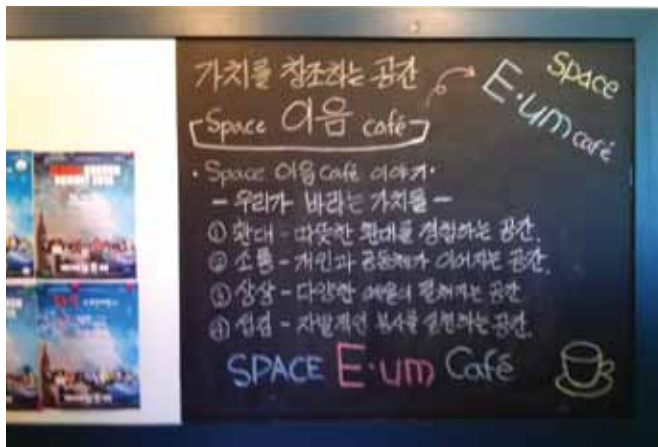 가치를 창조하는 공간
Space 이음 café
Space
E·um
café
· Space 이음 café 이야기 ·
- 우리가 바라는 가치들 -
① 환대 - 따뜻한 환대를 경험하는 공간.
② 소통 - 개인과 공동체가 이어지는 공간.
③ 상상 - 다양한 예술이 펼쳐지는 공간
④ 섬김 - 자발적인 봉사를 실천하는 공간.
SPACE E·um Café